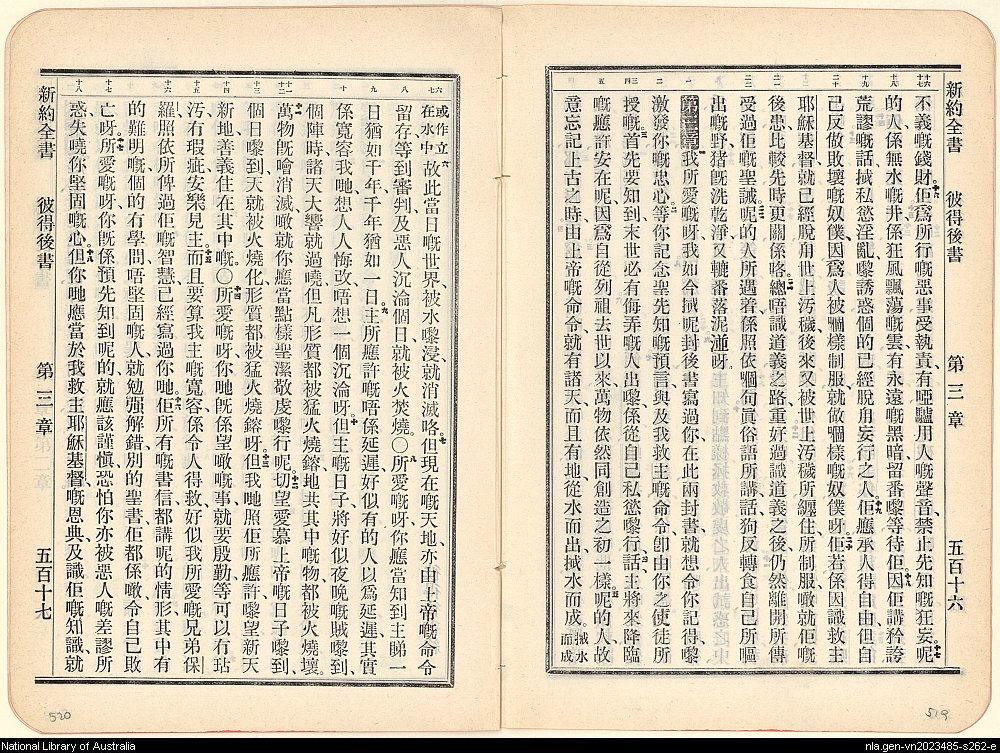 新約全書 彼得後書 第三章 五百十六
不義嘅錢財、佢爲所行嘅惡事受執責、有啞驢用人嘅聲音、禁止先知嘅狂妄。十七呢
的人係無水嘅井、係狂風飄蕩嘅雲、有永遠嘅黑暗留番嚟等待佢。十八因佢講矜誇
荒謬嘅話、拭私慾淫亂嚟誘惑個的已經脫甪妄行之人。十九佢應承人得自由、但自
己反做敗壞嘅奴僕、因爲人被嗰樣制服、就做嗰樣嘅奴僕呀。二十佢若係因識救主
耶穌基督、就已經脫甪世上汚穢、後來又被世上汚穢所纏住、所制服、噉就佢嘅
後患、比較先時更關係咯。總唔識道義之路重好過識道義之後、仍然離開所傳
受過佢嘅聖誡。呢的人所遇着係照依嗰句眞俗語所講話、狗反轉食自己所嘔
出嘅、野猪旣洗乾淨、又轆番落泥湴呀。
第三章一我所愛嘅呀、我如今拭呢封後書寫過你、在此兩封書、就想令你記得嚟
激發你嘅忠心、二等你記念聖先知嘅預言、與及我救主嘅命令、卽由你之使徒所
授嘅。三首先要知到末世必有侮弄嘅人出嚟、係從自己私慾嚟行、四話、主將來降臨
嘅應許安在呢、因爲自從列祖去世以來、萬物依然同創造之初一樣。五呢的人故
意忘記上古之時、由上帝嘅命令、就有諸天、而且有地、從水而出、拭水而成。拭水而成
新約全書 彼得後書 第三章 五百十七
或作立在水中六故此當日嘅世界、被水嚟浸、就消滅咯。七但現在嘅天地、亦由上帝嘅命令
留存、等到審判及惡人沉淪個日、就被火焚燒。〇八所愛嘅呀、你應當知到主睇一
日猶如千年、千年猶如一日。九主所應許嘅、唔係延遲、好似有的人以爲延遲、其實
係寬容我哋、想人人悔改、唔想一個沉淪呀。十但主嘅日子、將好似夜晚嘅賊嚟到、
個陣時諸天大響就過嘵、但凡形質都被猛火燒鎔、地共其中嘅物都被火燒壞。
十一萬物旣噲消滅噉、就你應當點樣聖潔敬虔嚟行呢。十二切望愛慕上帝嘅日子嚟到、
個日嚟到、天就被火燒化、形質都被猛火燒鎔呀。十三但我哋照佢所應許、嚟望新天
新地、善義住在其中嘅。〇十四所愛嘅呀、你哋旣係望噉嘅事、就要殷勤、等可以有玷
汚有瑕疵安樂見主。十五而且要算我主嘅寬容、係令人得救、好似我所愛嘅兄弟保
羅、照依所俾過佢嘅智慧、已經寫過你哋。十六佢所有嘅書信、都講呢的情形、其中有
的難明嘅、個的冇學問唔堅固嘅人、就勉强解錯、別的聖書佢都係噉、令自己敗
亡呀。十七所愛嘅呀、你旣係預先知到呢的、就應該謹愼、恐怕你亦被惡人嘅差謬所
惑、失嘵你堅固嘅心。十八但你哋應當於我救主耶穌基督嘅恩典、及識佢嘅知識、就
520
519
National Library of Australia
nla.gen-vn2023485-s262-e